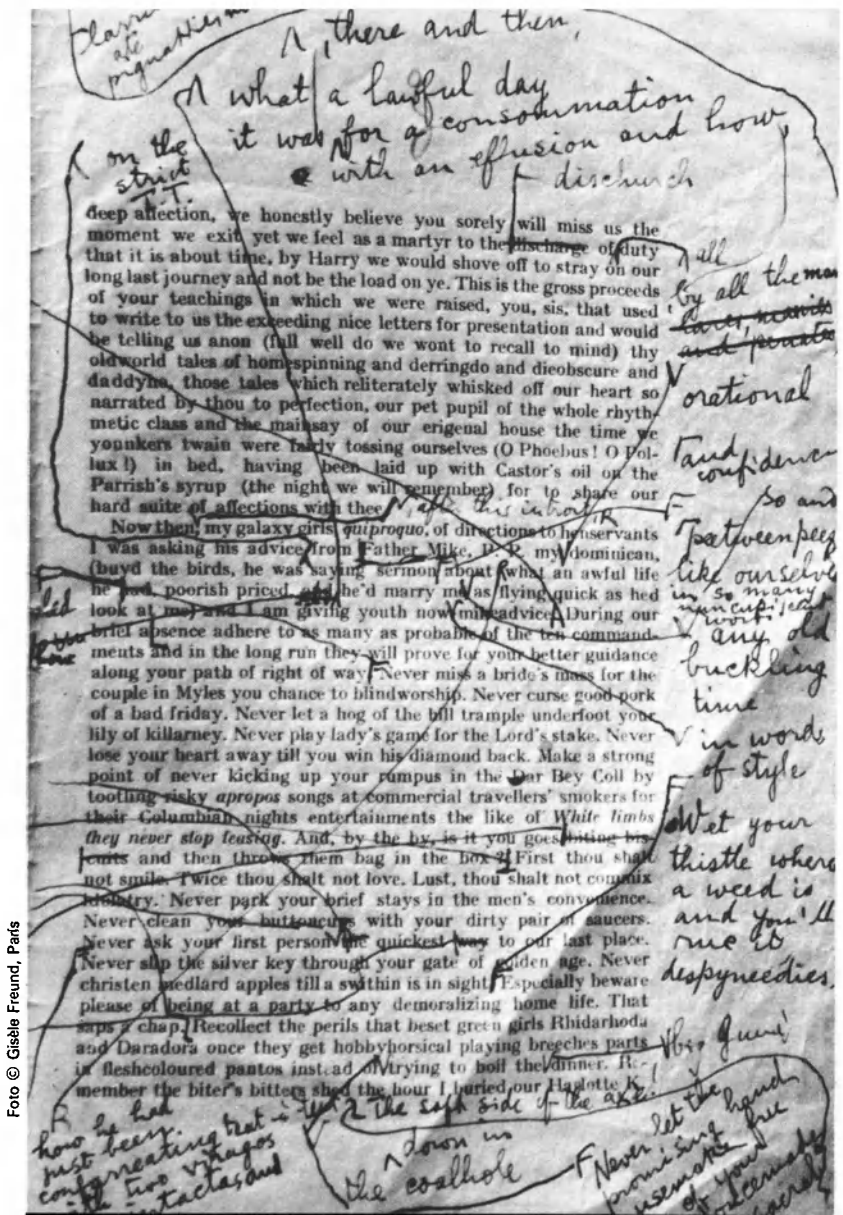 there and then,
what a lawful day
it was for a consommation
with an effusion and how
dischurch
on the
strict
T.T.
deep affection, we honestly believe you sorely will miss us the
moment we exit yet we feel as a martyr to the discharge of duty
that it is about time, by Harry we would shove off to stray on our
long last journey and not be the load on ye. This is the gross proceeds
of your teachings in which we were raised, you, sis, that used
to write to us the exceeding nice letters for presentation and would
be telling us anon (full well do we wont to recall to mind) thy
oldworld tales of homespinning and derringdo and dieobscure and
daddyho, those tales which reliterately whisked off our heart so
narrated by thou to perfection, our pet pupil of the whole rhyth-
metic class and the mainsay of our erigenal house the time we
younkers twain were fairly tossing ourselves (O Phoebus! O Pol-
lux!) in bed, having been laid up with Castor's oil on the
Parrish's syrup (the night we will remember) for to share our
hard suite of affections with thee.
after this introit,
Now then, my galaxy girls, quiproquo, of directions to henservants
I was asking his advice from Father Mike, P. P. my dominican,
(buyd the birds, he was saying sermon about what an awful life
he poorish priced he'd marry me as flying quick as hed
look at me) and I am giving youth now mile advice. During our
brief absence adhere to as many as probable of the ten command-
ments and in the long run they will prove for your better guidance
along your path of right of way. Never miss a bride's mass for the
couple in Myles you chance to blindworship. Never curse good pork
of a bad friday. Never let a hog of the hill trample underfoot your
lily of killarney. Never play lady's game for the Lord's stake. Never
lose your heart away till you win his diamond back. Make a strong
point of never kicking up your rumpus in the Dar Bey Coll by
tootling risky apropos songs at commercial travellers' smokers for
their Columbian nights entertainments the like of White limbs
they never stop teasing. And, by the by, is it you goes biting bis-
cuits and then throws them bag in the box? First thou shalt
not smile. Twice thou shalt not love. Lust, thou shalt not commix
idolatry. Never park your brief stays in the men's convenience.
Never clean your buttoncups with your dirty pair of saucers.
Never ask your first person the quickest way to our last place.
Never slip the silver key through your gate of golden age. Never
christen medlard apples till a swithin is in sight. Especially beware
please of being at a party to any demoralizing home life. That
saps a chap. Recollect the perils that beset green girls Rhidarhoda
and Daradora once they get hobbyhorsical playing breeches parts
in fleshcoloured pantos instead of trying to boil the dinner. Re-
member the biter's bitters shed the hour I buried our Haglotte K
all
by all the
orational
and
confidence
so and
like ourselve
in so many
words
any old
buckling
time
in words
of style
Wet your
thistle where
a weed is
and you'll
rue it
despyneedies.
The soft side of the axe!
down in
the coalhole
how he had
just been
confarreating
with two viragos
intactas and
Never let the
promising hand
usemake free
of your
Foto © Gisèle Freund, París